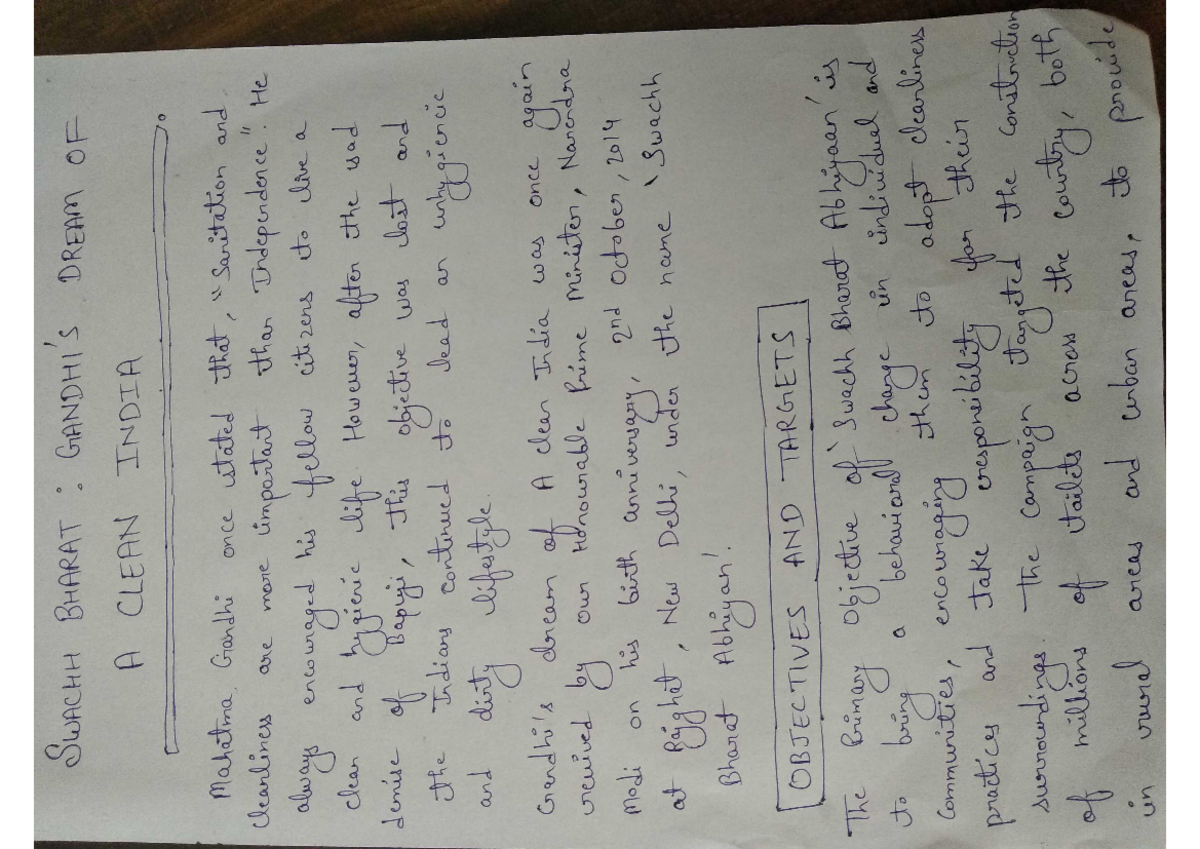 SWACHH BHARAT : GANDHI'S DREAM OF
A CLEAN INDIA
Mahatma Gandhi once stated that, "Sanitation and
cleanliness are more important than Independence". He
always encouraged his fellow citizens to live a
clean and hygienic life. However, after the sad
demise of Bapuji, this objective was lost and
the Indians continued to lead an unhygiencic
and dirty lifestyle.
Gandhi's dream of A clean India was once again
revived by our Honourable Prime Minister, Narendra
Modi on his birth anniversary, 2nd October, 2014
at Rajghat, New Delhi, under the name 'Swachh
Bharat Abhiyan'.
OBJECTIVES AND TARGETS
The Primary Objective of 'Swachh Bharat Abhiyaan' is
to bring a behavioral change in individual and
communities, encouraging them to adopt cleanliness
practices and take responsibility for their
surroundings. The campaign targeted the construction
of millions of tailets across the country, both
in rural areas and urban areas, to provide